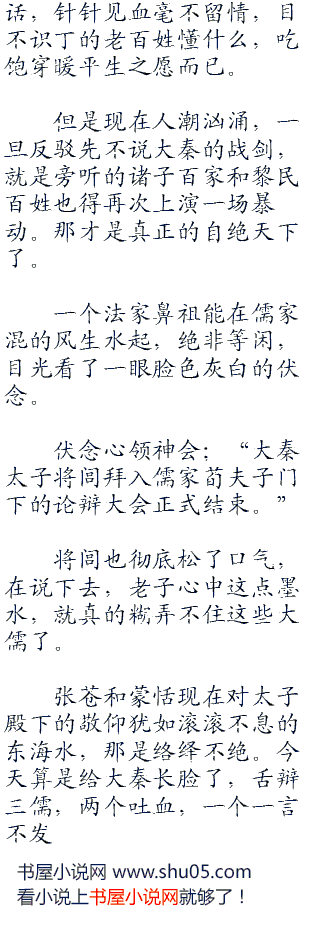 话，针针见血毫不留情，目
不识丁的老百姓懂什么，吃
饱穿暖平生之愿而已。
但是现在人潮汹涌，一
旦反驳先不说大秦的战剑，
就是旁听的诸子百家和黎民
百姓也得再次上演一场暴
动。那才是真正的自绝天下
了。
一个法家鼻祖能在儒家
混的风生水起，绝非等闲，
目光看了一眼脸色灰白的伏
念。
伏念心领神会；“大秦
太子将闾拜入儒家荀夫子门
下的论辩大会正式结束。”
将闾也彻底松了口气，
在说下去，老子心中这点墨
水，就真的糊弄不住这些大
儒了。
张苍和蒙恬现在对太子
殿下的敬仰犹如滚滚不息的
东海水，那是络绎不绝。今
天算是给大秦长脸了，舌辩
三儒，两个吐血，一个一言
不发
书屋小说网 www.shu05.com
看小说上书屋小说网就够了！